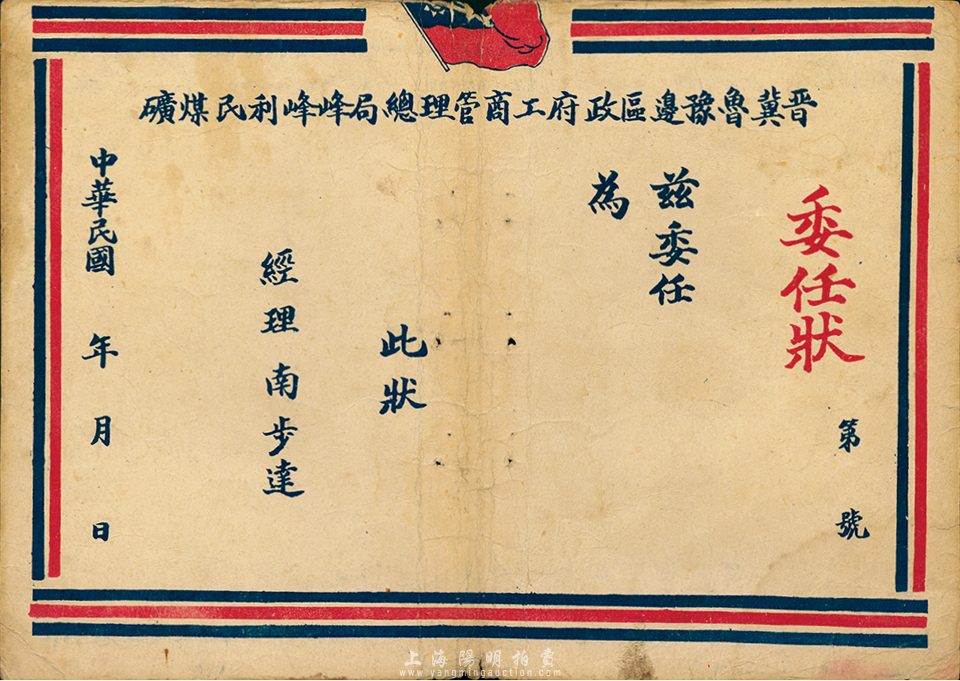 晋冀魯豫邊區政府工商管理總局峰峰利民煤礦
委任狀
第　號
茲委任
為
此狀
經理南步達
中華民國　年　月　日
上海陽明拍賣
www.yangmingauction.com